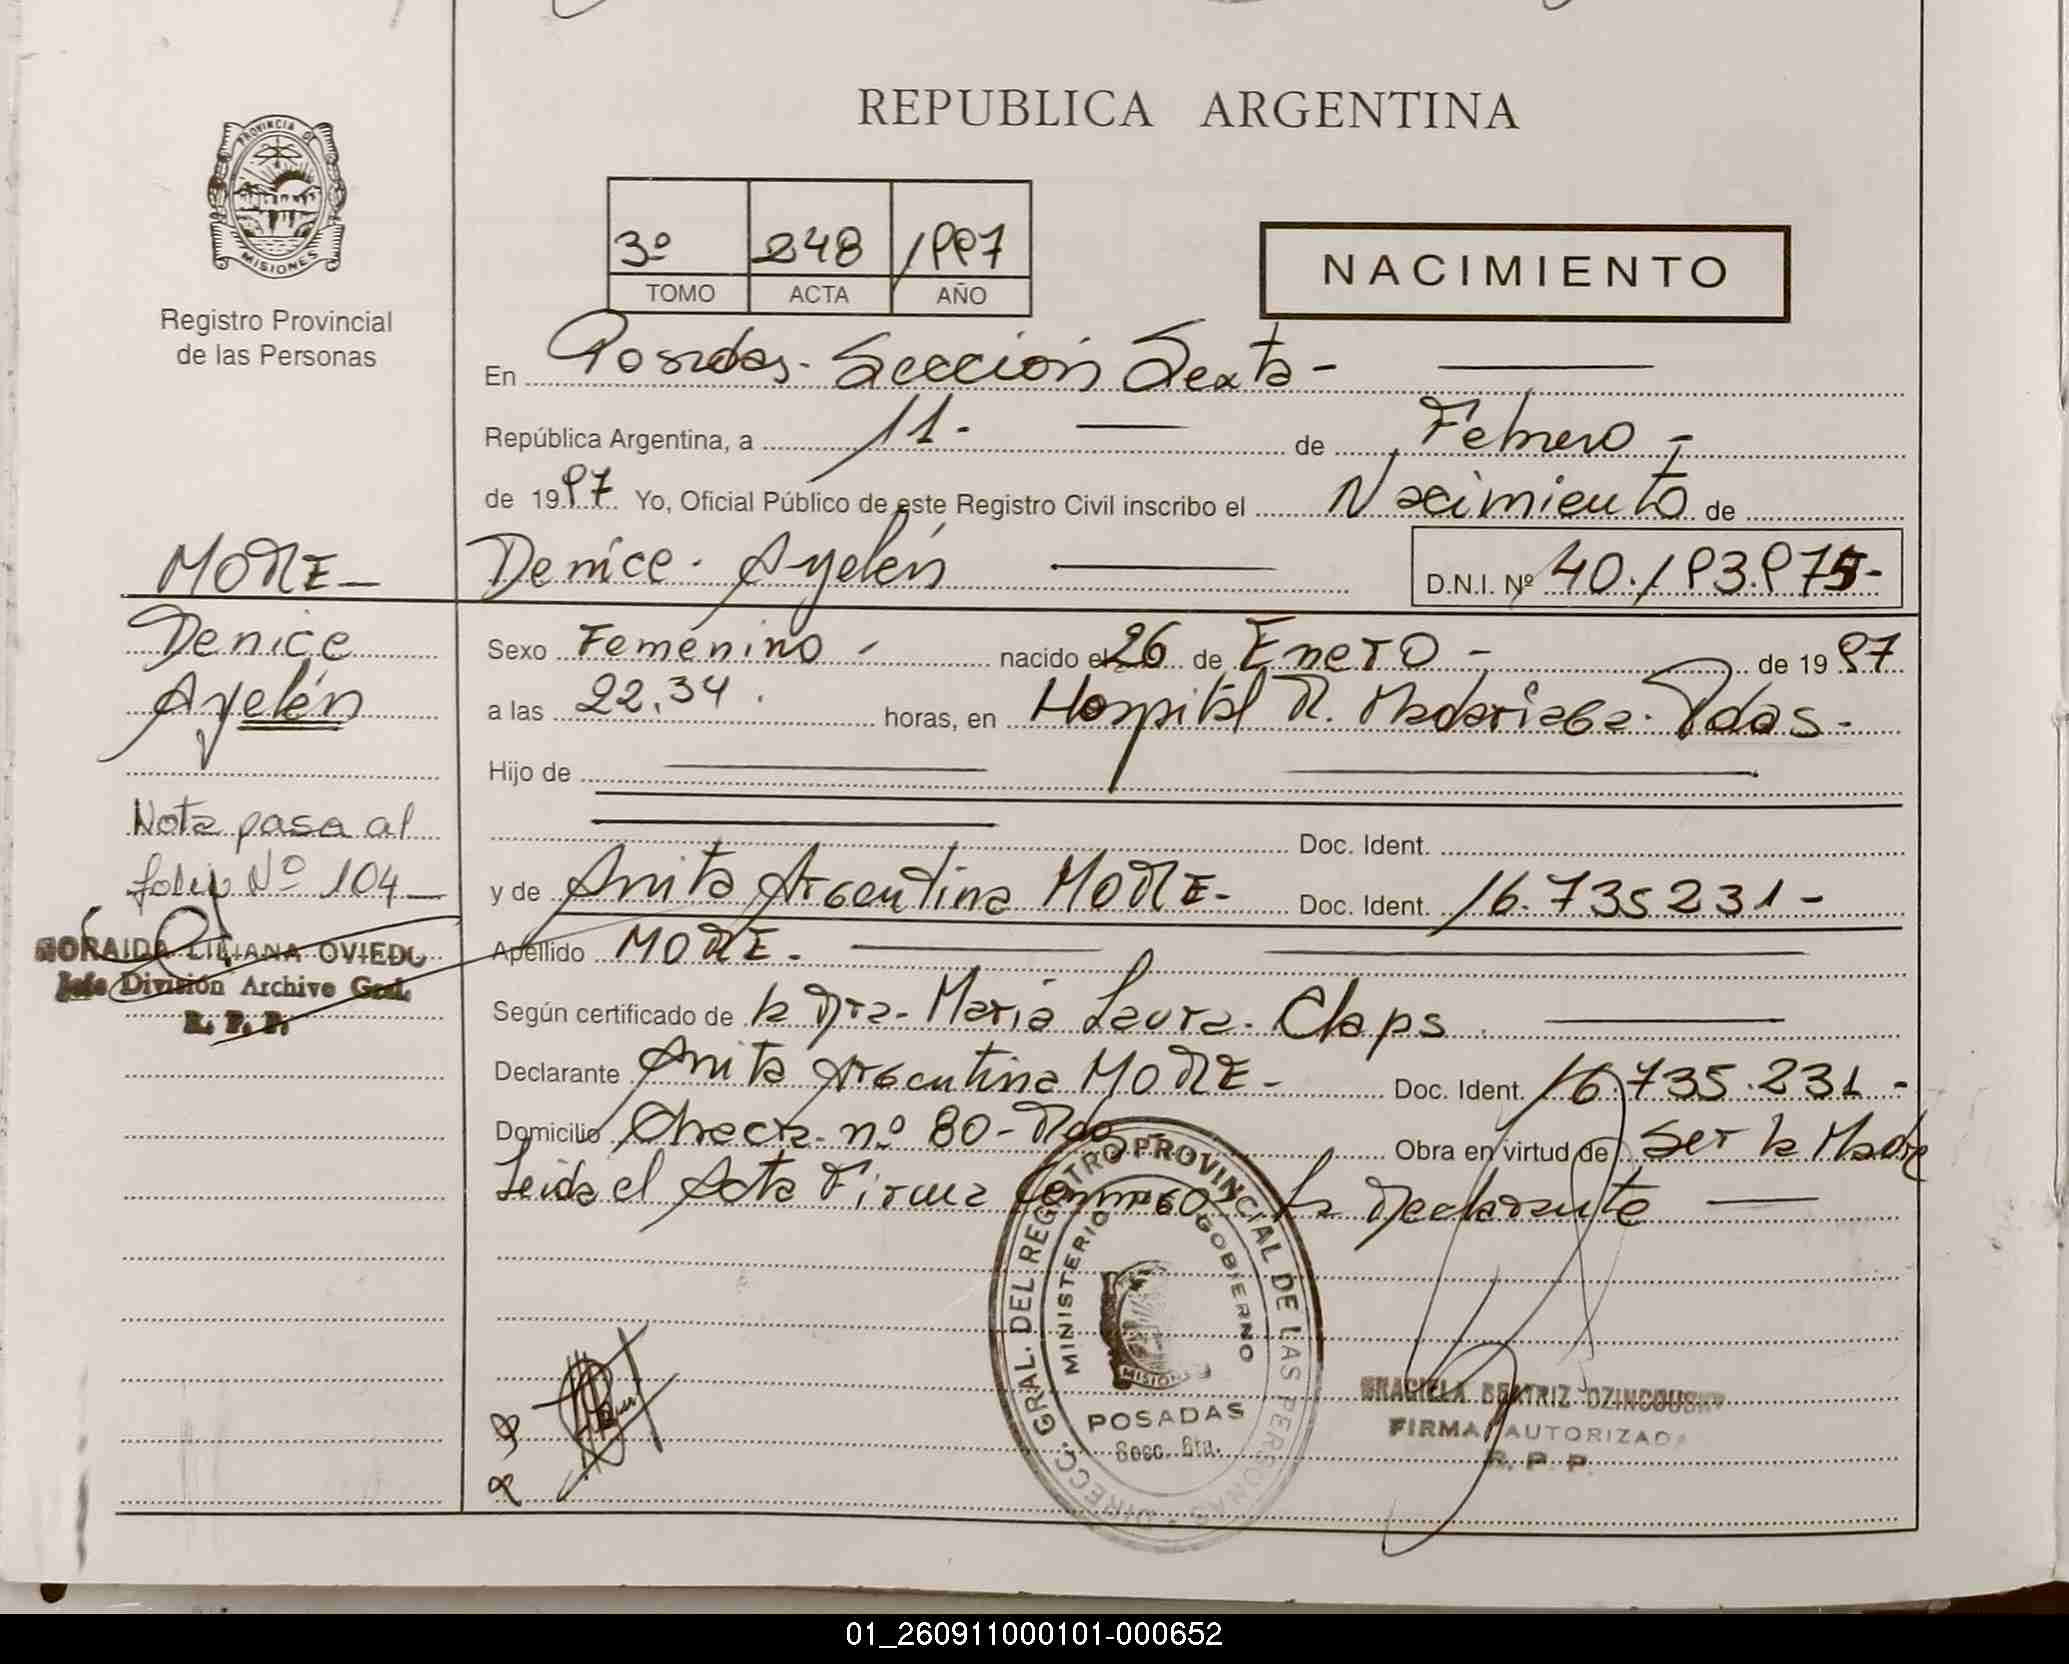 REPUBLICA ARGENTINA
PROVINCIA DE
MISIONES
Registro Provincial
de las Personas
3º 248 1997
TOMO ACTA AÑO
NACIMIENTO
En Posadas- Sección Sexta-
República Argentina, a 11- de Febrero-
de 1997 Yo, Oficial Público de este Registro Civil inscribo el Nacimiento de
Denice- Ayelén D.N.I. Nº 40.193.975-
MORE-
Denice
Ayelén
Nota pasa al
folio Nº 104-
LILIANA OVIEDO
Jefe División Archivo Gral.
R. P. P.
Sexo Femenino- nacido el 26 de Enero- de 1997
a las 22,34. horas, en Hospital R. Madariaga- Pdas-
Hijo de
Doc. Ident.
y de Anita Argentina MORE- Doc. Ident. 16.735231-
Apellido MORE-
Según certificado de la Dra- María Laura- Claps
Declarante Anita Argentina MORE- Doc. Ident. 16.735.231-
Domicilio nº 80- Obra en virtud de Ser la Madre
Leida el Acta Firma Conmigo la Declarante
DIRECC. GRAL. DEL REGISTRO PROVINCIAL DE LAS PERSONAS
MINISTERIO GOBIERNO
MISIONES
POSADAS
Secc. 6ta.
GRACIELA BEATRIZ
FIRMA AUTORIZADA
R. P. P.
01_260911000101-000652